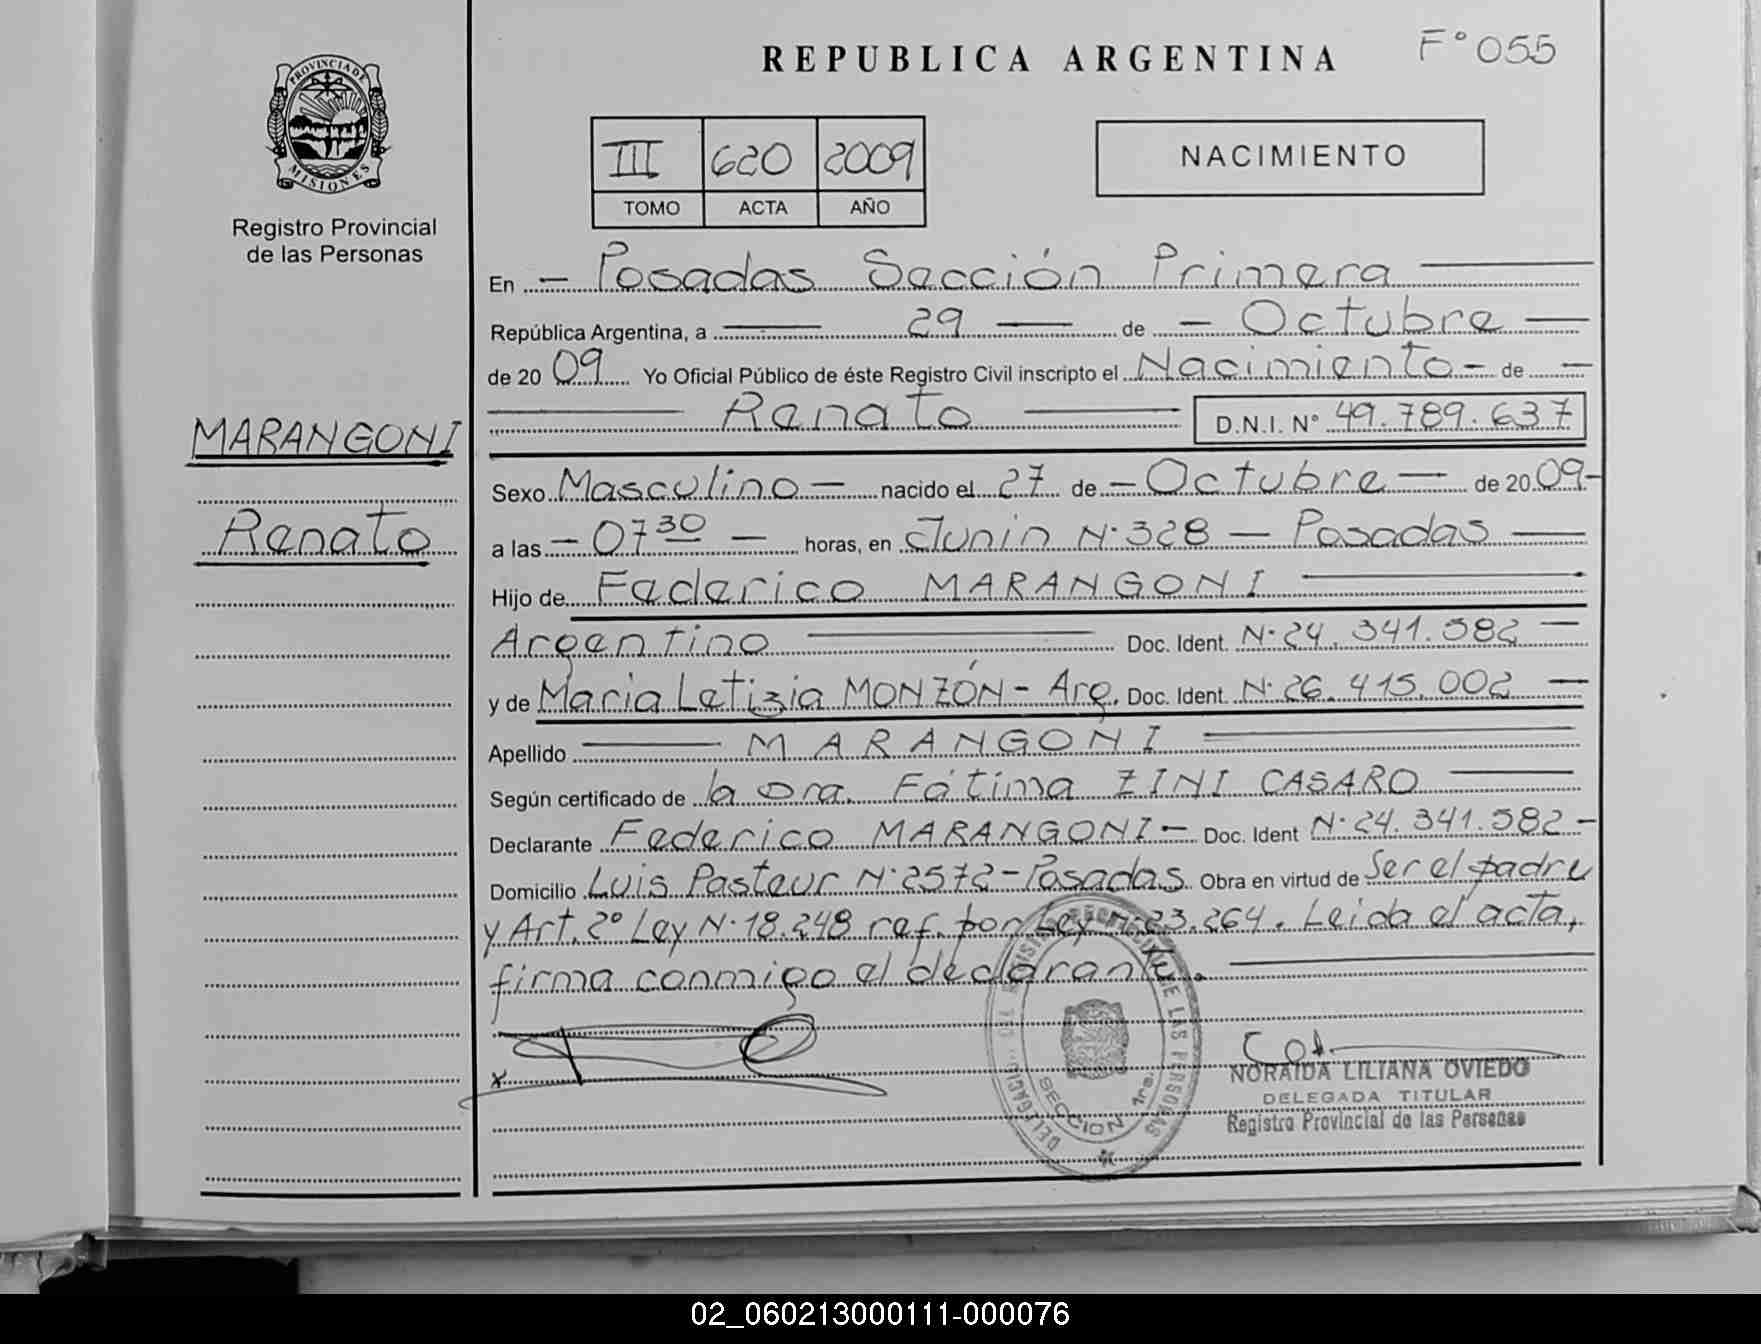 REPUBLICA ARGENTINA
F° 055
PROVINCIA DE MISIONES
Registro Provincial
de las Personas
III 620 2009
TOMO ACTA AÑO
NACIMIENTO
En - Posadas Sección Primera
República Argentina, a 29 de - Octubre
de 20 09 Yo Oficial Público de éste Registro Civil inscripto el Nacimiento - de -
Renato D.N.I. N° 49.789.637
MARANGONI
Renato
Sexo Masculino - nacido el 27 de - Octubre - de 20 09 -
a las - 07 30 - horas, en Junin N° 328 - Posadas
Hijo de Federico MARANGONI
Argentino Doc. Ident. N° 24.341.582
y de Maria Letizia MONZÓN - Arg. Doc. Ident. N° 26.415.002
Apellido MARANGONI
Según certificado de la Dra. Fátima ZINI CASARO
Declarante Federico MARANGONI - Doc. Ident N° 24.341.582 -
Domicilio Luis Pasteur N° 2572 - Posadas Obra en virtud de Ser el padre
y Art. 2° Ley N° 18.248 ref. por Ley N° 23.264. Leida el acta,
firma conmigo el declarante.
x
SECCION 1ra.
NORAIDA LILIANA OVIEDO
DELEGADA TITULAR
Registro Provincial de las Personas
02_060213000111-000076